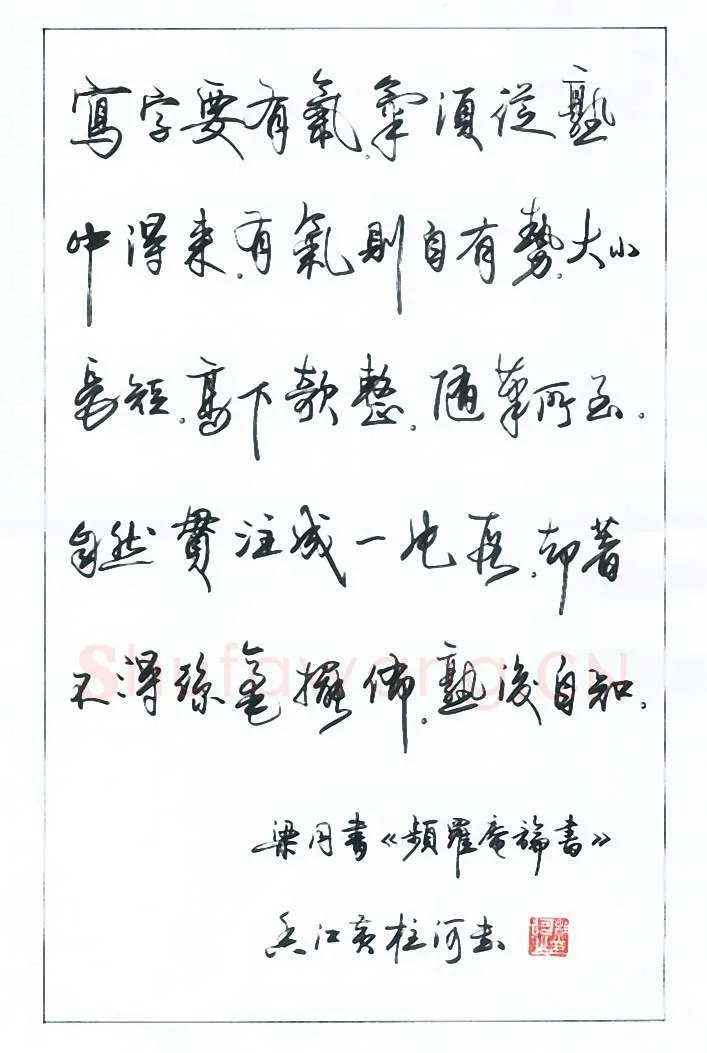 寫字要有氣，氣須從熟
中得來。有氣則自有勢，大小
長短，高下欹整，隨筆所至，
自然貫注成一也段，却著
不得絲毫擺佈，熟後自知。
梁同書《頻羅庵論書》
香江黃柱河書
ShufaWang.CN